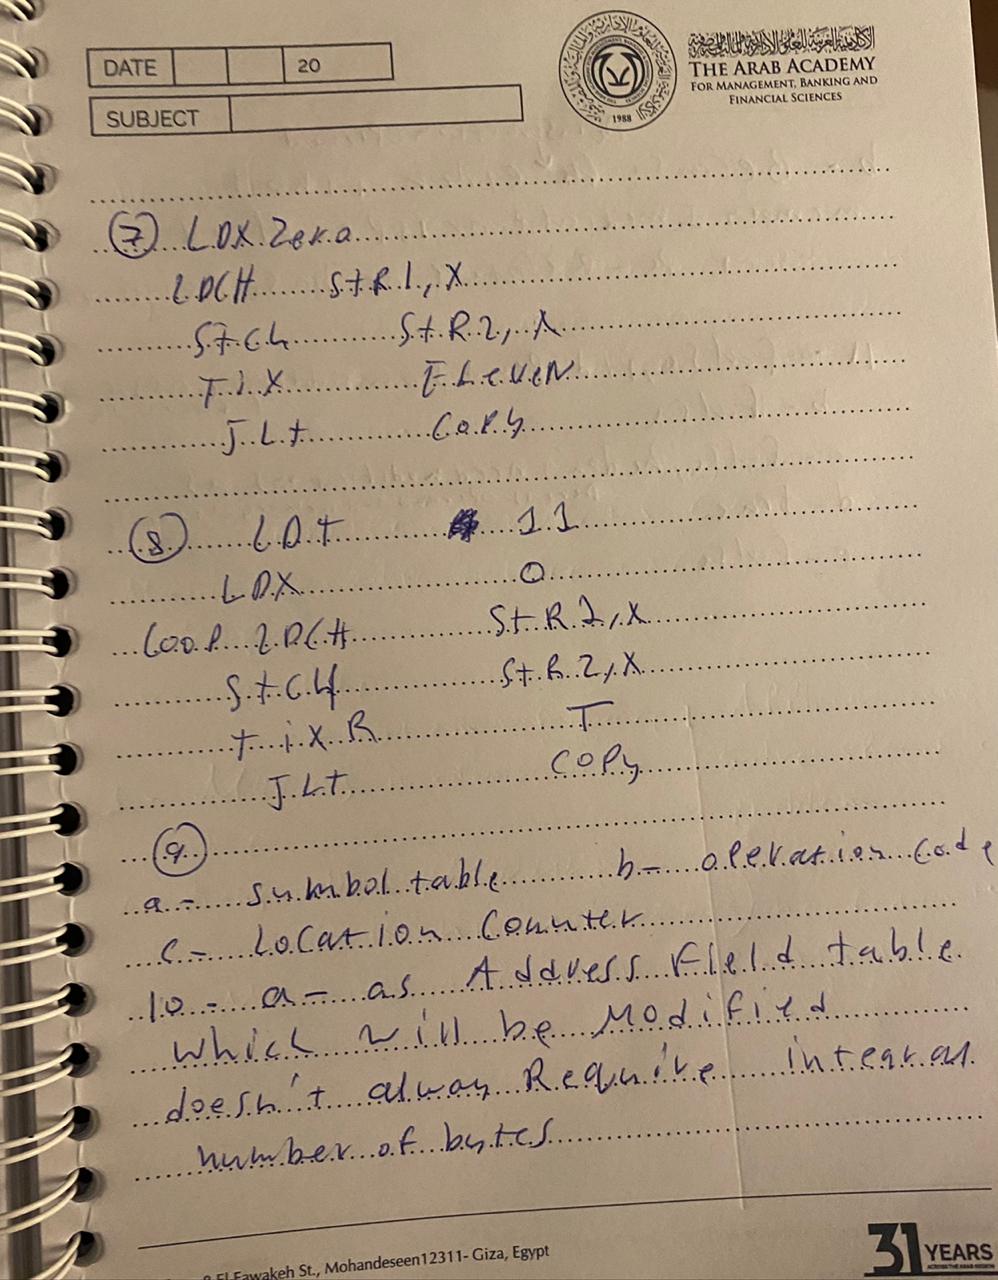 DATE 20
SUBJECT
الأكاديمية العربية للعلوم الإدارية والمالية والمصرفية
THE ARAB ACADEMY
FOR MANAGEMENT, BANKING AND
FINANCIAL SCIENCES
1988
7 LDX Zero
LDCH STR1, X
STCH STR2, X
TIX ELEVEN
JLT COPY
8 LDT 11
LDX 0
LOOP LDCH STR1, X
STCH STR2, X
TIXR T
JLT COPY
9
a- Symbol table b- operation code
c- Location Counter
10- a- as Address Field table
which will be Modified
doesn't alway Require integral
number of bytes
El Fawakeh St., Mohandeseen12311- Giza, Egypt
31 YEARS
ACROSS THE ARAB REGION